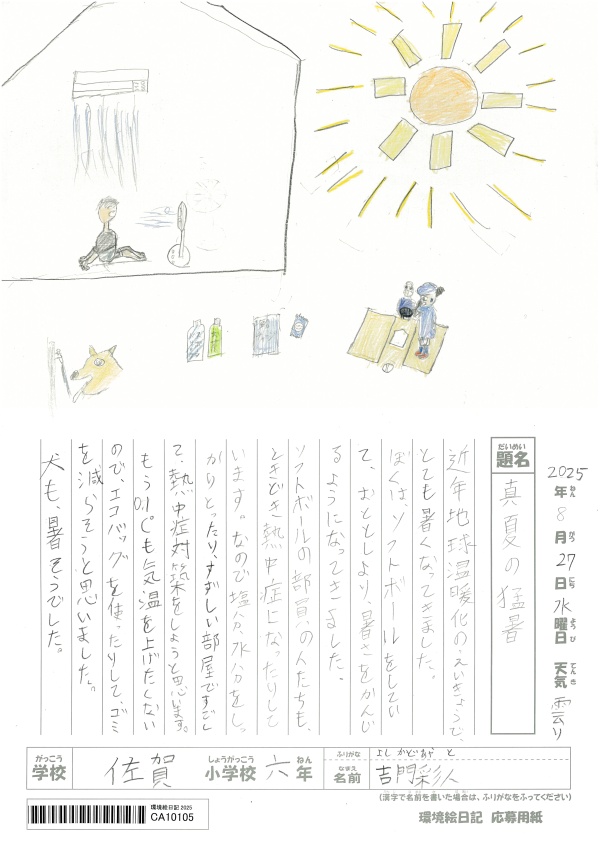 2025年8月27日水曜日 天気雲り
ねん がつ にち ようび てんき
だいめい
題名
真夏の猛暑
近年地球温暖化のえいきょうで、
とても暑くなってきました。
ぼくは、ソフトボールをしてい
て、おととしより、暑さをかんじ
るようになってきました。
ソフトボールの部員の人たちも、
ときどき熱中症になったりして
います。なので塩分、水分をしっ
かりとったり、すずしい部屋ですごし
て、熱中症対策をしようと思います。
もう0.1℃も気温を上げたくない
ので、エコバッグを使ったりして、ゴミ
を減らそうと思いました。
犬も、暑そうでした。
がっこう しょうがっこう ねん
学校 佐賀 小学校 六年
ふりがな よしかどあやと
なまえ
名前 吉門彩人
(漢字で名前を書いた場合は、ふりがなをふってください)
環境絵日記 2025
CA10105
環境絵日記 応募用紙